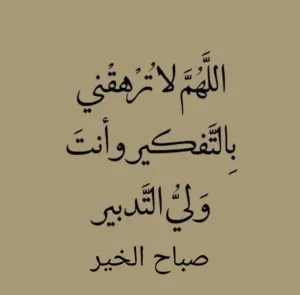 اللَّهُمَّ لا تُرْهقْني
بِالتَّفكير وأنتَ
وَليُّ التَّدبير
صباح الخير